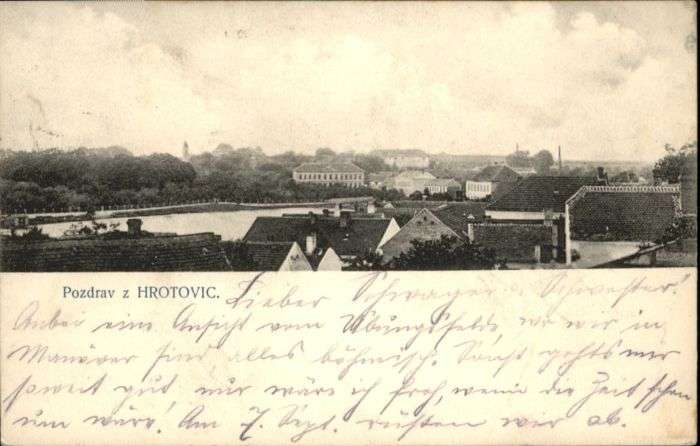 Pozdrav z HROTOVIC.
Lieber Schwager u Schwester!
Anbei eine Ansicht vom Übungsfelde, wo wir in
Manöver sind alles böhmisch. Sonst gehts mir
soweit gut, nur wäre ich froh, wenn die Zeit schon
um wäre! Am 7. Sept. rüsten wir ab.